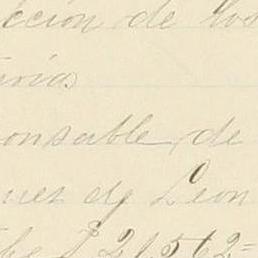 cción de los
orias
onsable, de
uez de Leon
be $ 21.562=